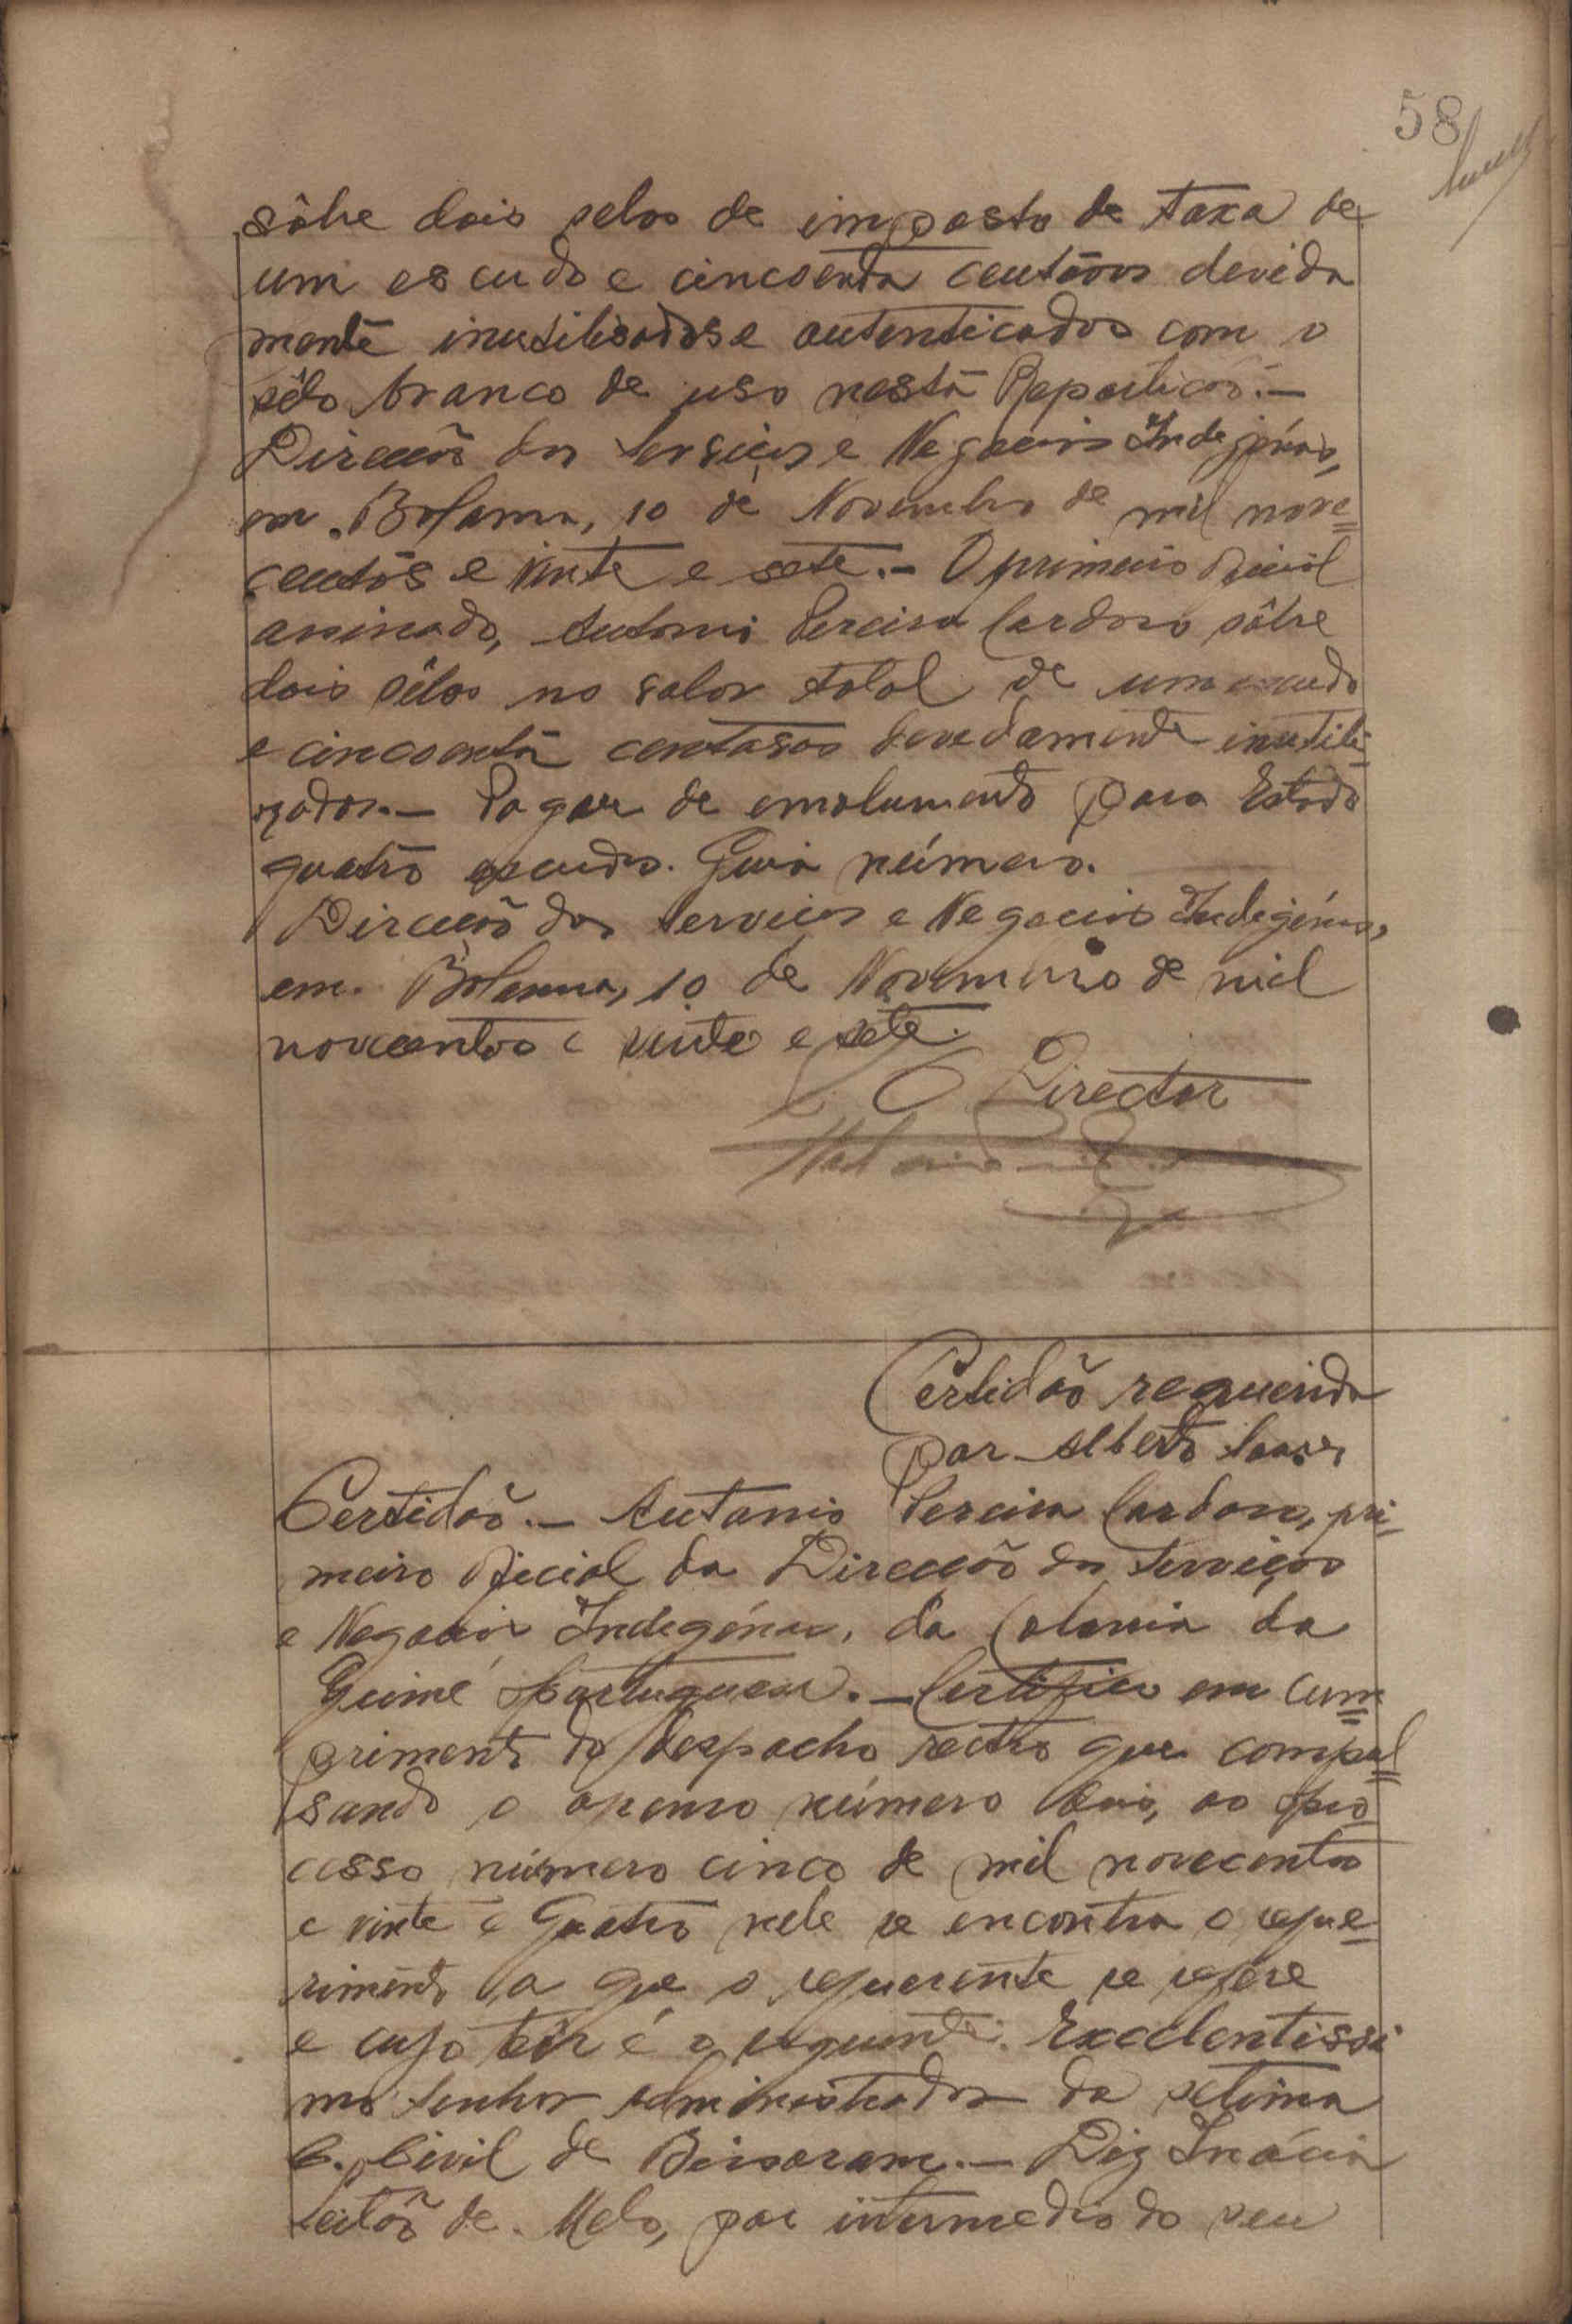 58
sôbre dois selos de imposto de taxa de
um escudo e cincoenta centavos devida
mente inutilisados e autenticados com o
sêlo branco de uso nesta Repartição.—
Direcção dos Serviços e Negocios Indegénas,
em Bolama, 10 de Novembro de mil nove=
centos e vinte e sete.— O primeiro oficial
assinado, Antonio Pereira Cardoso sôbre
dois sêlos no valor total de um escudo
e cincoenta centavos devedamente inutili-
zados.— Pagou de emolumento para Estado
quatro escudos. Guia número.
Direcção dos Serviços e Negocios Indegénas,
em Bolama, 10 de Novembro de mil
novecentos e vinte e sete.
O Director
Certidão requerida
por Alberto
Certidão.— Antonio Pereira Cardoso, pri-
meiro oficial da Direcção dos Serviços
e Negocios Indegénas, da Colonia da
Guiné Portuguesa.— Certifico em cum=
primento do despacho rectro que compul=
sando o apenso número dois, ao pro
cesso número cinco de mil novecentos
e vinte e quatro nele se encontra o reque-
rimento a que o requerente se refere
e cujo teôr é o seguinte: Excelentissi
mo Senhor Administrador da setima
C. Civil de Bissoram.— Diz Inácio
Leitão de Melo, por intermedio do seu